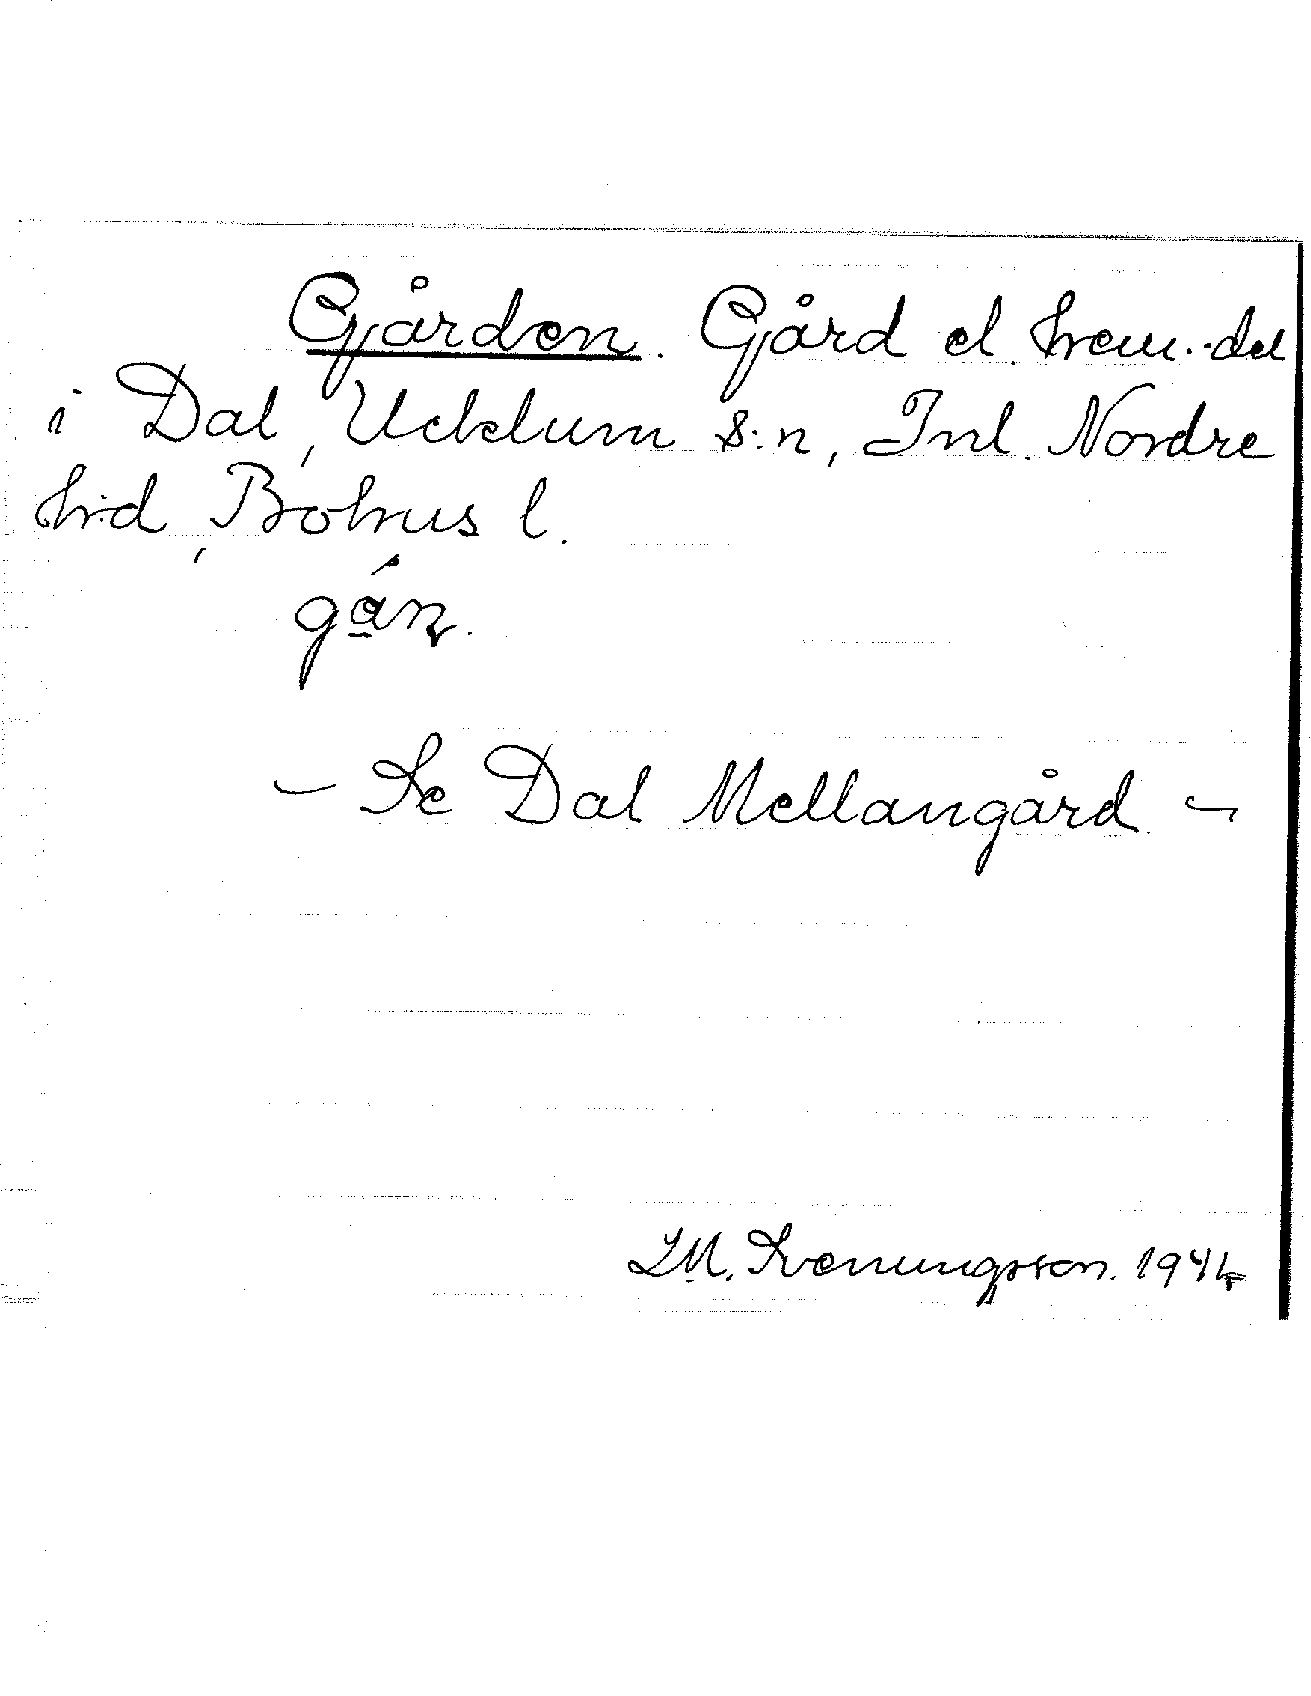 Gården. Gård el. hem.-del
i Dal, Ucklum s:n, Inl. Nordre
h:d, Bohus l.
– Se Dal Mellangård –
J.M. Svenungsson. 1944